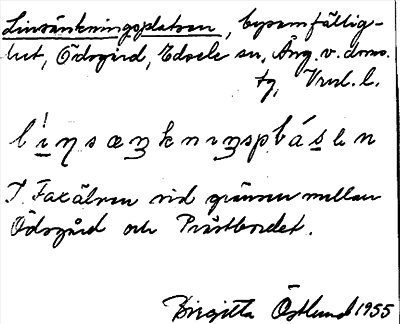 Linsänkningsplatsen, bysamfällig-
het, Ödsgård, Edsele sn, Ång. v. doms.
tg, Vnrl. l.
l i n s æ n k n i n s p l á s e n
I Faxälven vid gränsen mellan
Ödsgård och Prästbordet.
Birgitta Östlund 1955